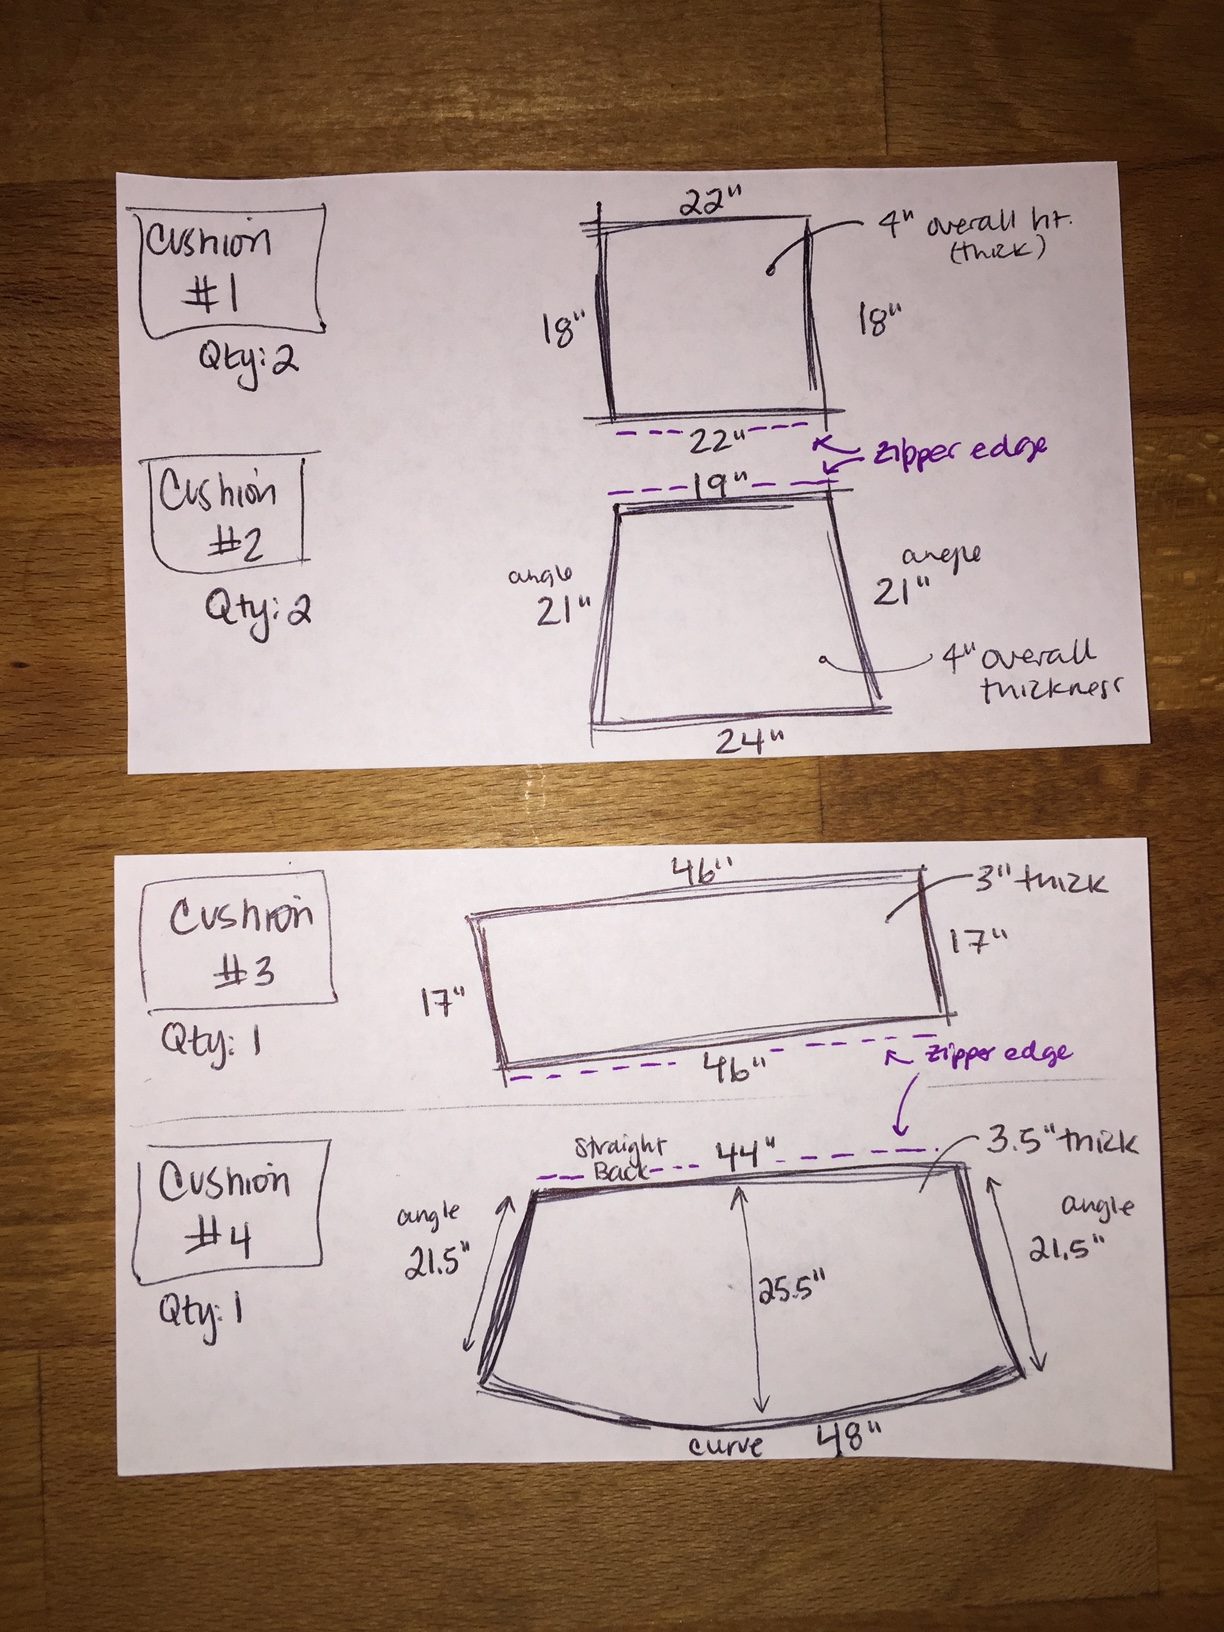 Cushion
#1
Qty: 2
22"
4" overall ht.
(thick)
18"
18"
22"
zipper edge
Cushion
#2
Qty: 2
19"
angle
21"
angle
21"
4" overall
thickness
24"
Cushion
#3
Qty: 1
46"
3" thick
17"
17"
46"
zipper edge
Cushion
#4
Qty: 1
Straight
Back
44"
3.5" thick
angle
21.5"
angle
21.5"
25.5"
curve 48"